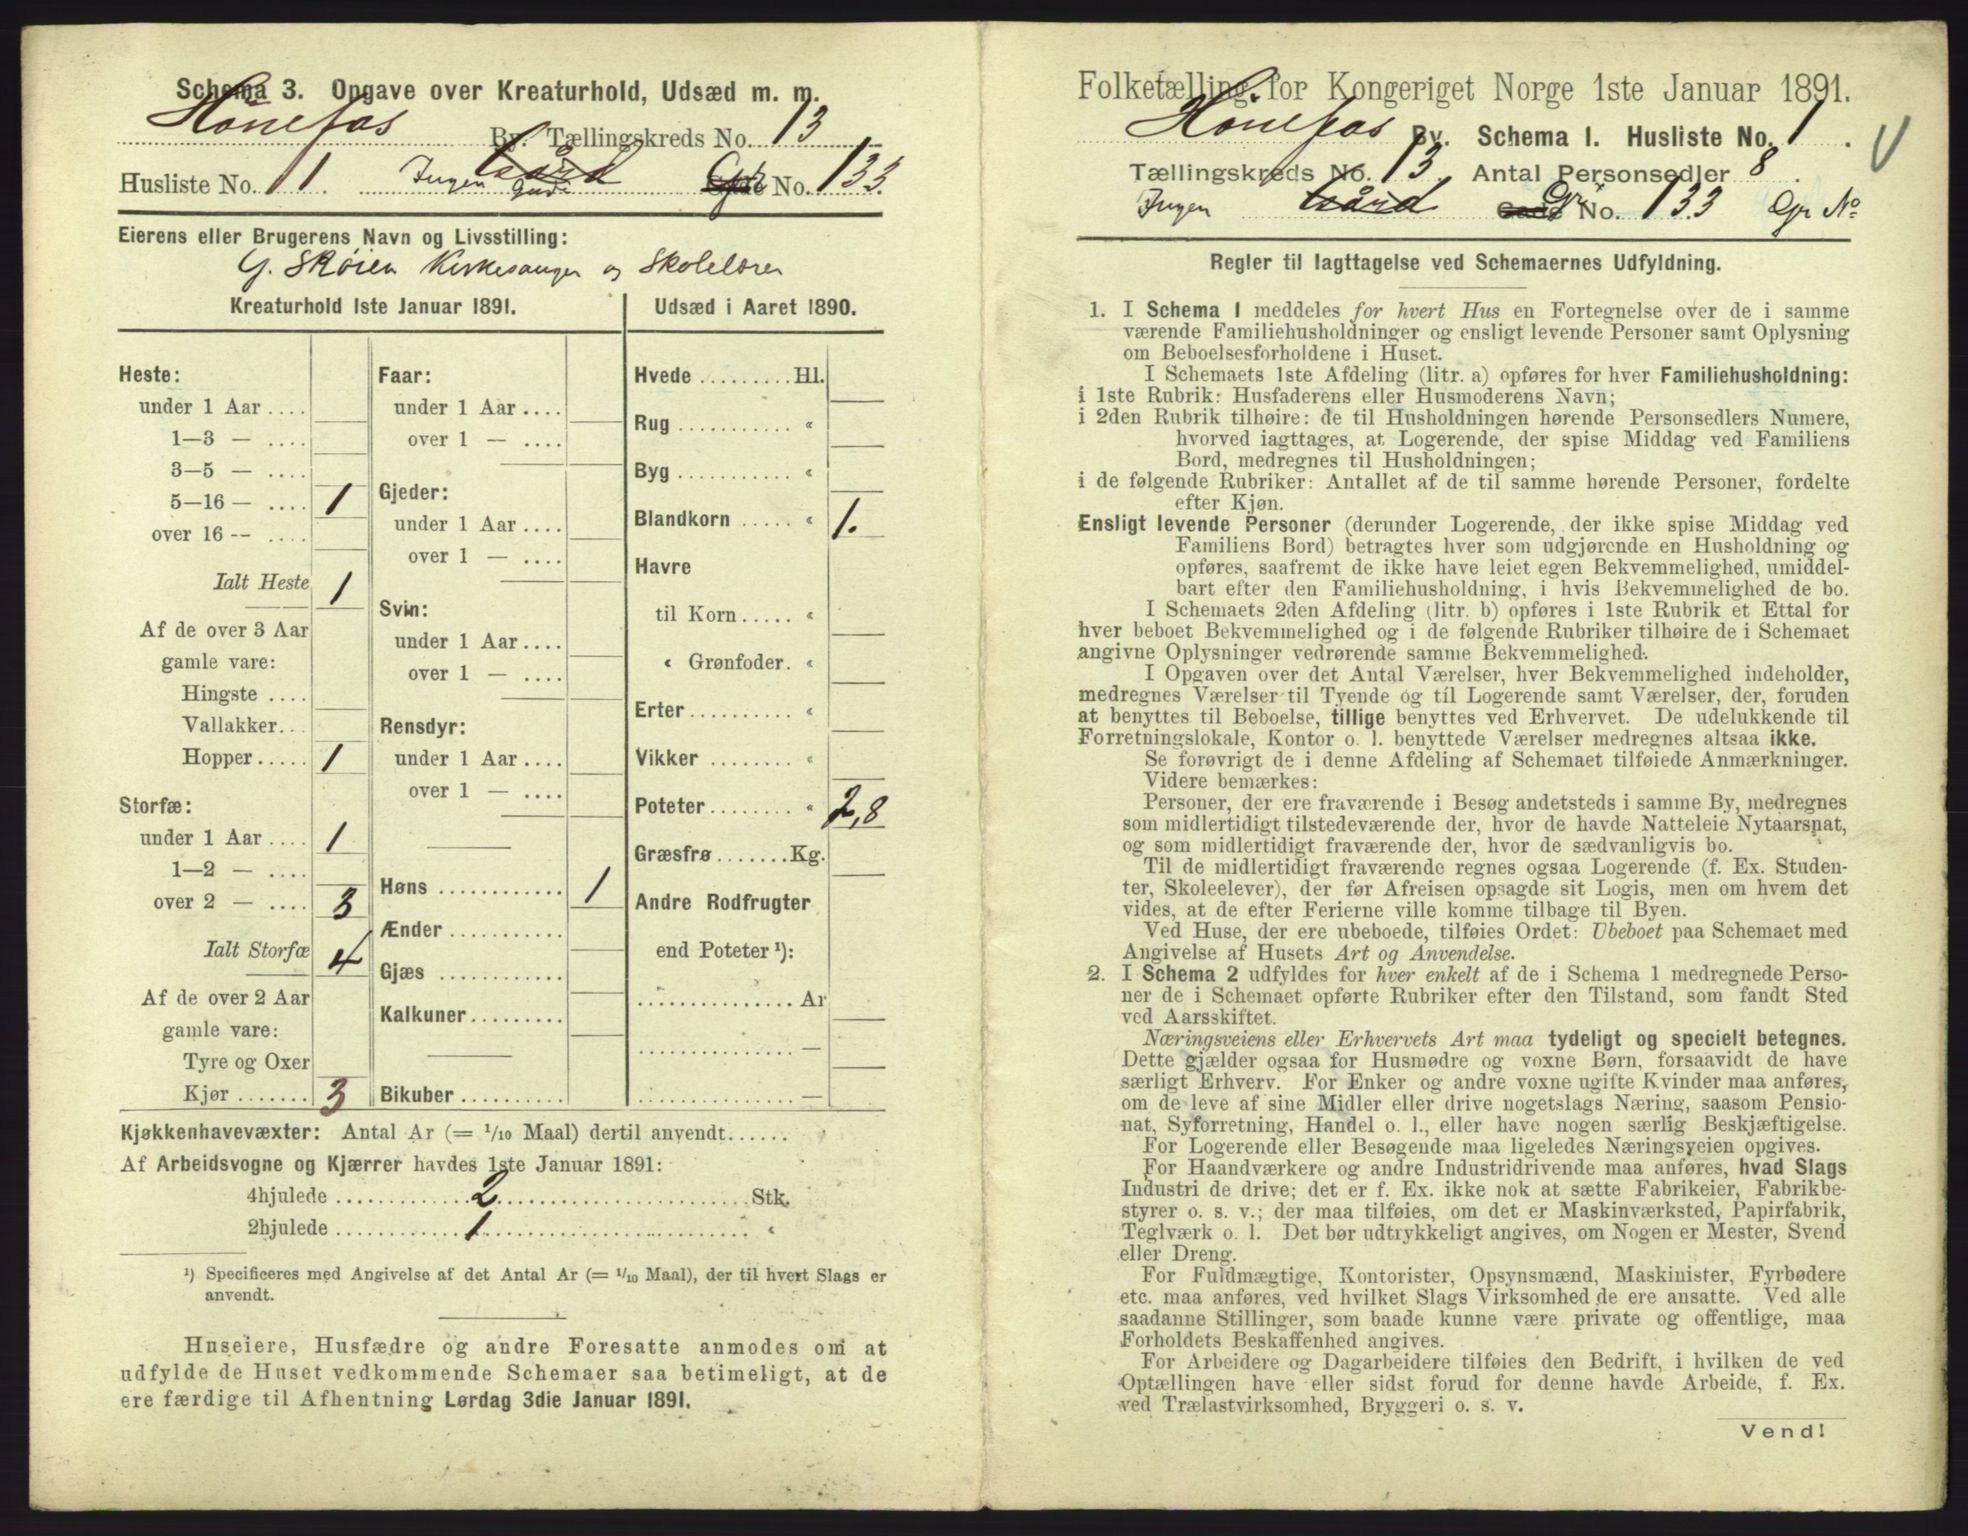 Schema 3. Opgave over Kreaturhold, Udsæd m. m.
Hönefos By. Tællingskreds No. 13
Husliste No. 11. Ingen Gård No. 133.
Eierens eller Brugerens Navn og Livsstilling:
G. Skøien Kirkesanger og Skolelærer
Kreaturhold 1ste Januar 1891.
Heste:
under 1 Aar ....
1—3 — ....
3—5 — ....
5—16 — .... 1
over 16 — ....
Ialt Heste 1
Af de over 3 Aar
gamle vare:
Hingste ....
Vallakker...
Hopper ..... 1
Storfæ:
under 1 Aar .... 1
1—2 — ....
over 2 — .... 3
Ialt Storfæ 4
Af de over 2 Aar
gamle vare:
Tyre og Oxer
Kjør ....... 3
Faar:
under 1 Aar ....
over 1 — ....
Gjeder:
under 1 Aar ....
over 1 — ....
Svin:
under 1 Aar ....
over 1 — ....
Rensdyr:
under 1 Aar ....
over 1 — ....
Høns ............ 1
Ænder ...........
Gjæs ............
Kalkuner.........
Bikuber ..........
Udsæd i Aaret 1890.
Hvede ......... Hl.
Rug ........... «
Byg ........... «
Blandkorn ..... « 1.
Havre
til Korn ..... «
« Grønfoder. «
Erter.......... «
Vikker ........ «
Poteter ........ « 2,8
Græsfrø ....... Kg.
Andre Rodfrugter
end Poteter ¹):
............... Ar
............... —
............... —
Kjøkkenhavevæxter: Antal Ar (= 1/10 Maal) dertil anvendt......
Af Arbeidsvogne og Kjærrer havdes 1ste Januar 1891:
4hjulede .............. 2 .............. Stk.
2hjulede .............. 1 .............. «
¹) Specificeres med Angivelse af det Antal Ar (= 1/10 Maal), der til hvert Slags er
anvendt.
Huseiere, Husfædre og andre Foresatte anmodes om at
udfylde de Huset vedkommende Schemaer saa betimeligt, at de
ere færdige til Afhentning Lørdag 3die Januar 1891.
Folketælling for Kongeriget Norge 1ste Januar 1891.
Hönefos By. Schema 1. Husliste No. 1.
Tællingskreds No. 13. Antal Personsedler 8.
Ingen Gård Gr No. 133 Gr No
Regler til Iagttagelse ved Schemaernes Udfyldning.
1. I Schema 1 meddeles for hvert Hus en Fortegnelse over de i samme
værende Familiehusholdninger og ensligt levende Personer samt Oplysning
om Beboelsesforholdene i Huset.
I Schemaets 1ste Afdeling (litr. a) opføres for hver Familiehusholdning:
i 1ste Rubrik: Husfaderens eller Husmoderens Navn;
i 2den Rubrik tilhøire: de til Husholdningen hørende Personsedlers Numere,
hvorved iagttages, at Logerende, der spise Middag ved Familiens
Bord, medregnes til Husholdningen;
i de følgende Rubriker: Antallet af de til samme hørende Personer, fordelte
efter Kjøn.
Ensligt levende Personer (derunder Logerende, der ikke spise Middag ved
Familiens Bord) betragtes hver som udgjørende en Husholdning og
opføres, saafremt de ikke have leiet egen Bekvemmelighed, umiddel-
bart efter den Familiehusholdning, i hvis Bekvemmelighed de bo.
I Schemaets 2den Afdeling (litr. b) opføres i 1ste Rubrik et Ettal for
hver beboet Bekvemmelighed og i de følgende Rubriker tilhøire de i Schemaet
angivne Oplysninger vedrørende samme Bekvemmelighed.
I Opgaven over det Antal Værelser, hver Bekvemmelighed indeholder,
medregnes Værelser til Tyende og til Logerende samt Værelser, der, foruden
at benyttes til Beboelse, tillige benyttes ved Erhvervet. De udelukkende til
Forretningslokale, Kontor o. l. benyttede Værelser medregnes altsaa ikke.
Se forøvrigt de i denne Afdeling af Schemaet tilføiede Anmærkninger.
Videre bemærkes:
Personer, der ere fraværende i Besøg andetsteds i samme By, medregnes
som midlertidigt tilstedeværende der, hvor de havde Natteleie Nytaarsnat,
og som midlertidigt fraværende der, hvor de sædvanligvis bo.
Til de midlertidigt fraværende regnes ogsaa Logerende (f. Ex. Studen-
ter, Skoleelever), der før Afreisen opsagde sit Logis, men om hvem det
vides, at de efter Ferierne ville komme tilbage til Byen.
Ved Huse, der ere ubeboede, tilføies Ordet: Ubeboet paa Schemaet med
Angivelse af Husets Art og Anvendelse.
2. I Schema 2 udfyldes for hver enkelt af de i Schema 1 medregnede Perso-
ner de i Schemaet opførte Rubriker efter den Tilstand, som fandt Sted
ved Aarsskiftet.
Næringsveiens eller Erhvervets Art maa tydeligt og specielt betegnes.
Dette gjælder ogsaa for Husmødre og voxne Børn, forsaavidt de have
særligt Erhverv. For Enker og andre voxne ugifte Kvinder maa anføres,
om de leve af sine Midler eller drive nogetslags Næring, saasom Pensio-
nat, Syforretning, Handel o. l., eller have nogen særlig Beskjæftigelse.
For Logerende eller Besøgende maa ligeledes Næringsveien opgives.
For Haandværkere og andre Industridrivende maa anføres, hvad Slags
Industri de drive; det er f. Ex. ikke nok at sætte Fabrikeier, Fabrikbe-
styrer o. s. v.; der maa tilføies, om det er Maskinværksted, Papirfabrik,
Teglværk o. l. Det bør udtrykkeligt angives, om Nogen er Mester, Svend
eller Dreng.
For Fuldmægtige, Kontorister, Opsynsmænd, Maskinister, Fyrbødere
etc. maa anføres, ved hvilket Slags Virksomhed de ere ansatte. Ved alle
saadanne Stillinger, som baade kunne være private og offentlige, maa
Forholdets Beskaffenhed angives.
For Arbeidere og Dagarbeidere tilføies den Bedrift, i hvilken de ved
Optællingen have eller sidst forud for denne havde Arbeide, f. Ex.
ved Trælastvirksomhed, Bryggeri o. s. v.
Vend!